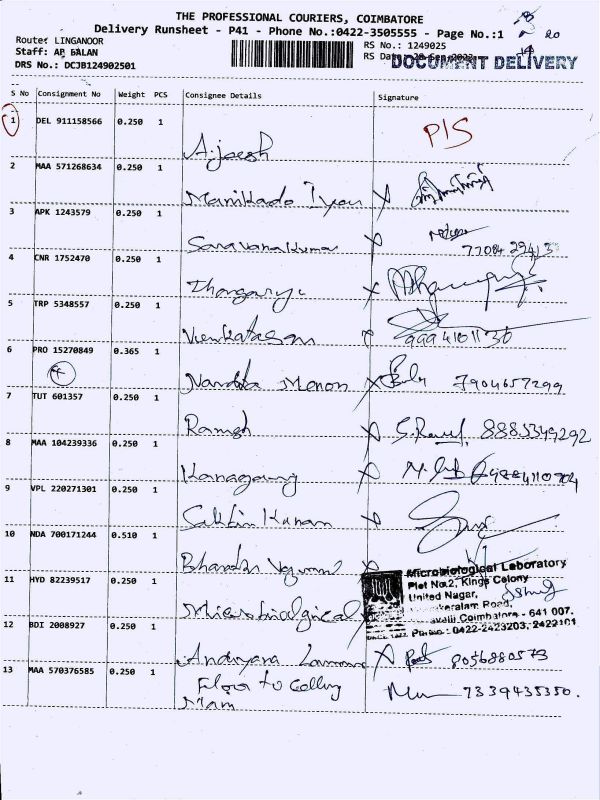 THE PROFESSIONAL COURIERS, COIMBATORE
Delivery Runsheet - P41 - Phone No.:0422-3505555 - Page No.:1
20
Route: LINGANOOR
RS No.: 1249025
Staff: AP BALAN
RS Date
DOCUMENT DELIVERY
DRS No.: DCJB124902501
S No Consignment No Weight PCS Consignee Details Signature
1 DEL 911158566 0.250 1
P/S
Ajeesh
2 MAA 571268634 0.250 1
Manikado Iyer X
3 APK 1243579 0.250 1
Saravanakumar X
4 CNR 1752470 0.250 1
Thangaraj X
5 TRP 5348557 0.250 1
Venkatesan X 9994101130
6 PRO 15270849 0.365 1
4
Nandita Menon X 7904657299
7 TUT 601357 0.250 1
Ramesh X 8885349292
8 MAA 104239336 0.250 1
Kanagaraj X
9 VPL 220271301 0.250 1
X
10 NDA 700171244 0.510 1
11 HYD 82239517 0.250 1
Microbiological Laboratory
Plot No.2, Kings Colony
United Nagar,
Road,
Coimbatore - 641 007.
0422-2423203, 2422101
12 BDI 2008927 0.250 1
X 8056880573
13 MAA 570376585 0.250 1
Floor to Ceiling 7339435350.
Mam